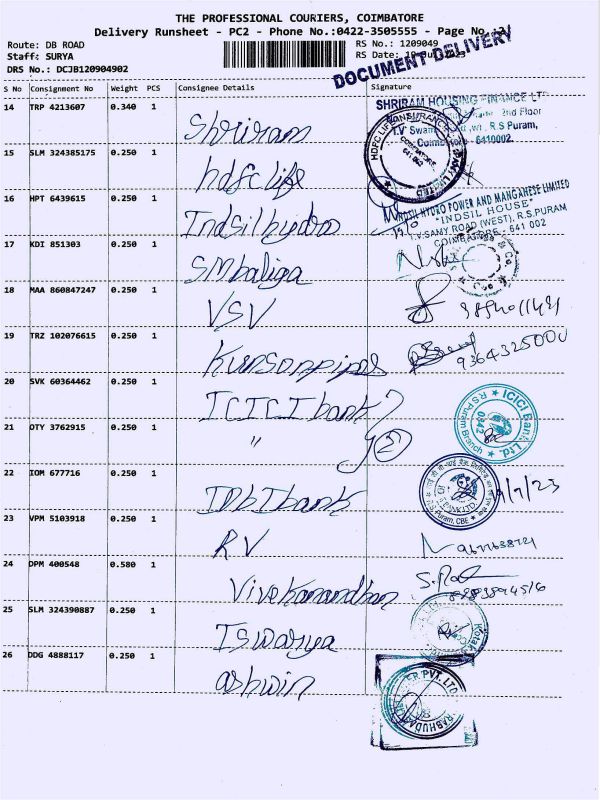 THE PROFESSIONAL COURIERS, COIMBATORE
Delivery Runsheet - PC2 - Phone No.:0422-3505555 - Page No.:2
Route: DB ROAD
RS No.: 1209049
Staff: SURYA
RS Date:
DRS No.: DCJB120904902
DOCUMENT DELIVERY
S No Consignment No Weight PCS Consignee Details Signature
14 TRP 4213607 0.340 1 Shriram
SHRIRAM HOUSING FINANCE LTD
2nd Floor
T.V Swamy R.S Puram,
Coimbatore - 6410002.
15 SLM 324385175 0.250 1 hdfc life
HDFC LIFE INSURANCE COMPANY LIMITED
COIMBATORE
641 002
16 HPT 6439615 0.250 1 Indsil hydro
INDSIL HYDRO POWER AND MANGANESE LIMITED
"INDSIL HOUSE"
T.V.SAMY ROAD (WEST), R.S.PURAM
COIMBATORE - 641 002
17 KDI 851303 0.250 1 SM baliga
& Co.
18 MAA 860847247 0.250 1 VSV
19 TRZ 102076615 0.250 1 Kunsonpipes
9364325000
20 SVK 60364462 0.250 1 ICICI bank
ICICI Bank Ltd.
0342
R S Puram Branch
21 OTY 3762915 0.250 1 " 2
22 IOM 677716 0.250 1 IDBI bank
R.S. Puram, CBE
/7/23
23 VPM 5103918 0.250 1 RV
24 DPM 400548 0.580 1 Vivekanandhan
25 SLM 324390887 0.250 1 Iswarya
Kotak
26 DDG 4888117 0.250 1 ashwin
PVT. LTD